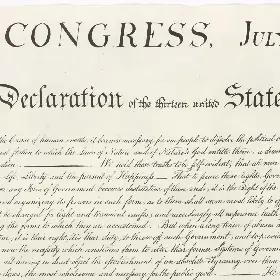 CONGRESS, Jul
Declaration of the thirteen united State
Course of human events, it becomes necessary for one people to dissolve the political
to which the Laws of Nature and of Nature's God entitle them, a
We hold these truths to be self-evident, that all men
Life, Liberty and the pursuit of Happiness. — That to secure these rights, Govern
any Form of Government becomes destructive of these ends, it is the Right of the
and organizing its powers in such form, as to them shall seem most likely to
be changed for light and transient causes; and accordingly all experience hath
the forms to which they are accustomed. But when a long train of abuses
it is their right, it is their duty, to throw off such Government,
now the necessity which constrains them to alter their former Systems of Government
all having in direct object the establishment of an absolute Tyranny over
Laws, the most wholesome and necessary for the public good.